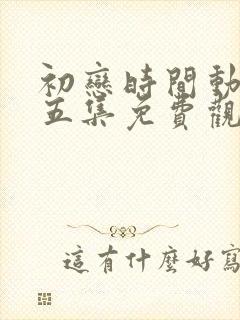 初戀時間動
五集免費觀
這有什麼好寫